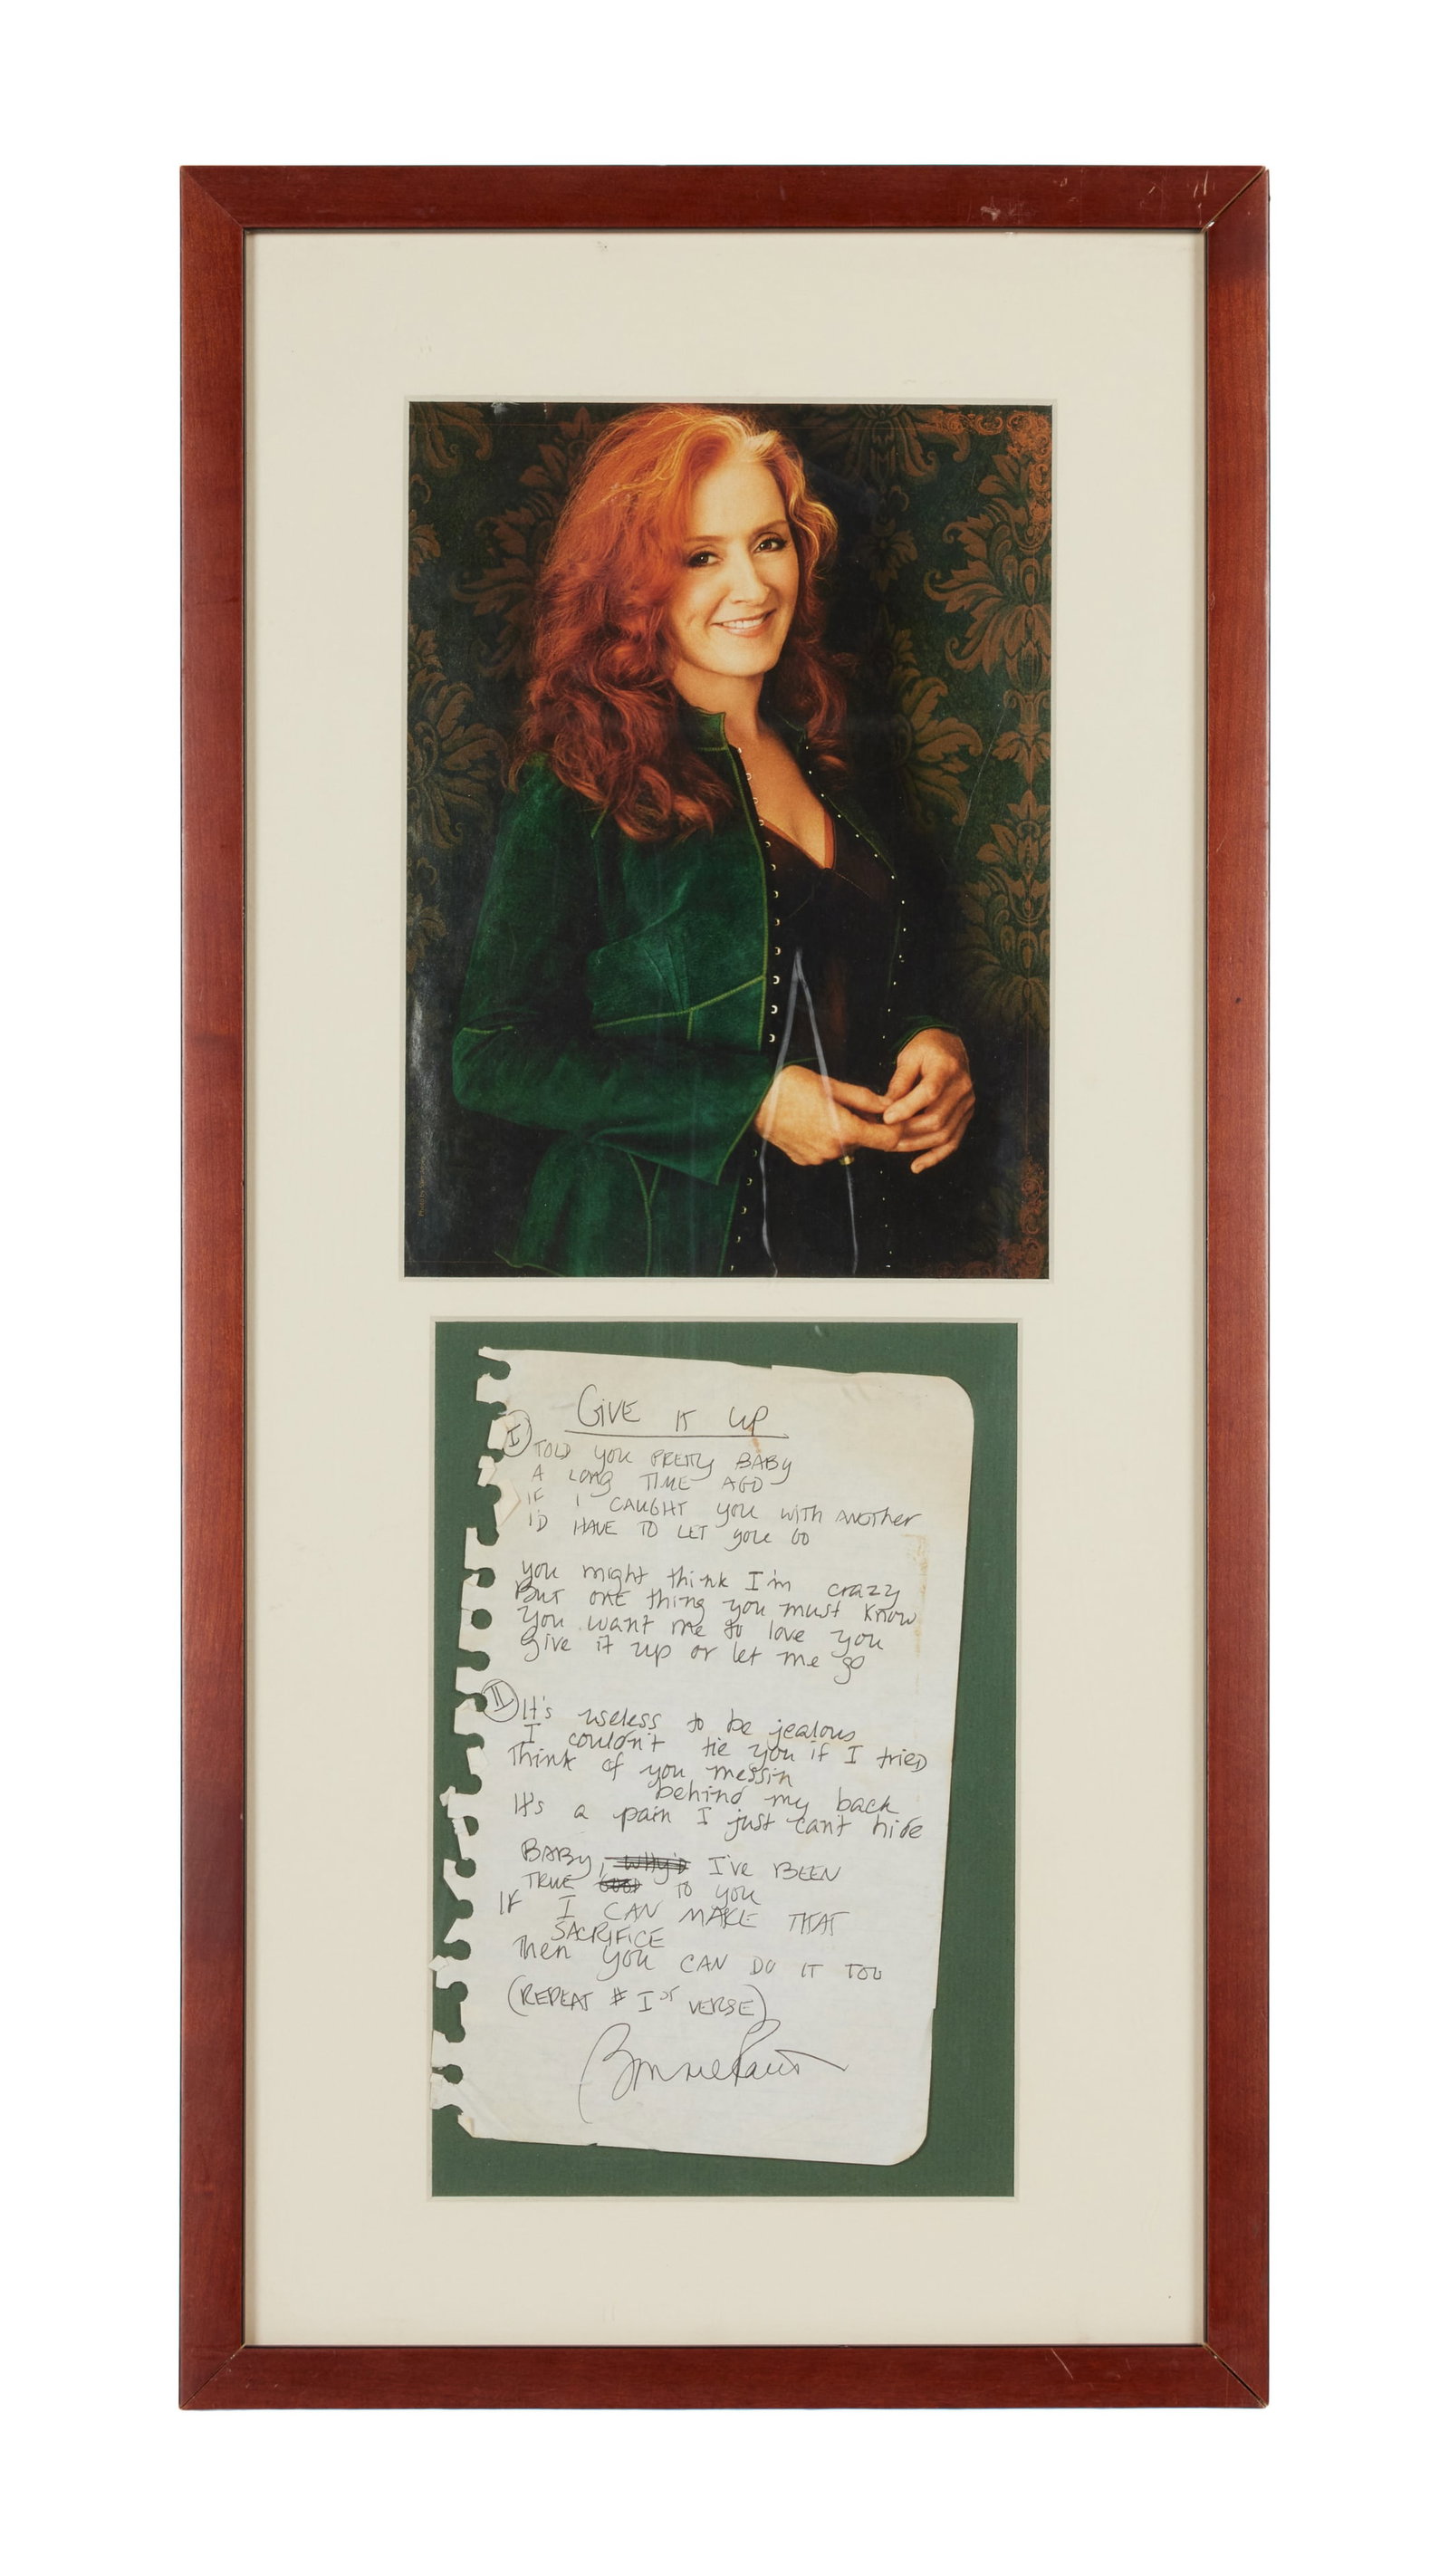 GIVE IT UP
I TOLD YOU PRETTY BABY
A LONG TIME AGO
IF I CAUGHT YOU WITH ANOTHER
I'D HAVE TO LET YOU GO
you might think I'm crazy
But one thing you must know
You want me to love you
Give it up or let me go
II It's useless to be jealous
I couldn't tie you if I tried
Think of you messin
behind my back
It's a pain I just can't hide
BABY, WHY'D I'VE BEEN
TRUE GOOD TO YOU
IF I CAN MAKE THAT
SACRIFICE
Then YOU CAN DO IT TOO
(REPEAT # Ist VERSE)
Bonnie Raitt
Photo by